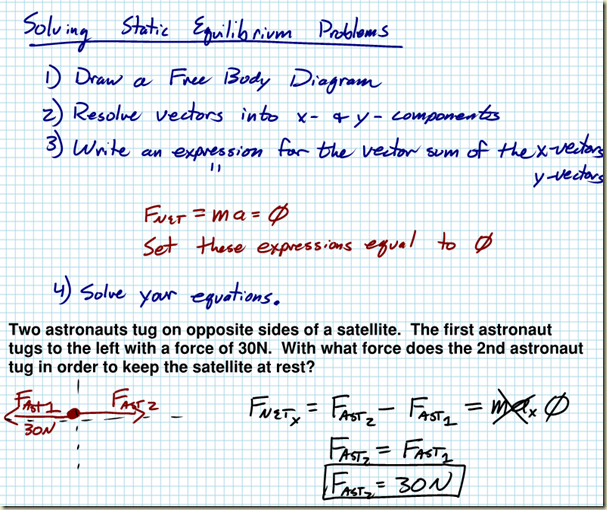 Solving Static Equilibrium Problems
1) Draw a Free Body Diagram
2) Resolve vectors into x- & y- components
3) Write an expression for the vector sum of the x-vectors
" y-vectors
FNET = ma = Ø
Set these expressions equal to Ø
4) Solve your equations.
Two astronauts tug on opposite sides of a satellite. The first astronaut
tugs to the left with a force of 30N. With what force does the 2nd astronaut
tug in order to keep the satellite at rest?
FAST1 FAST2
30N
FNETx = FAST2 - FAST1 = max Ø
FAST2 = FAST1
FAST2 = 30N